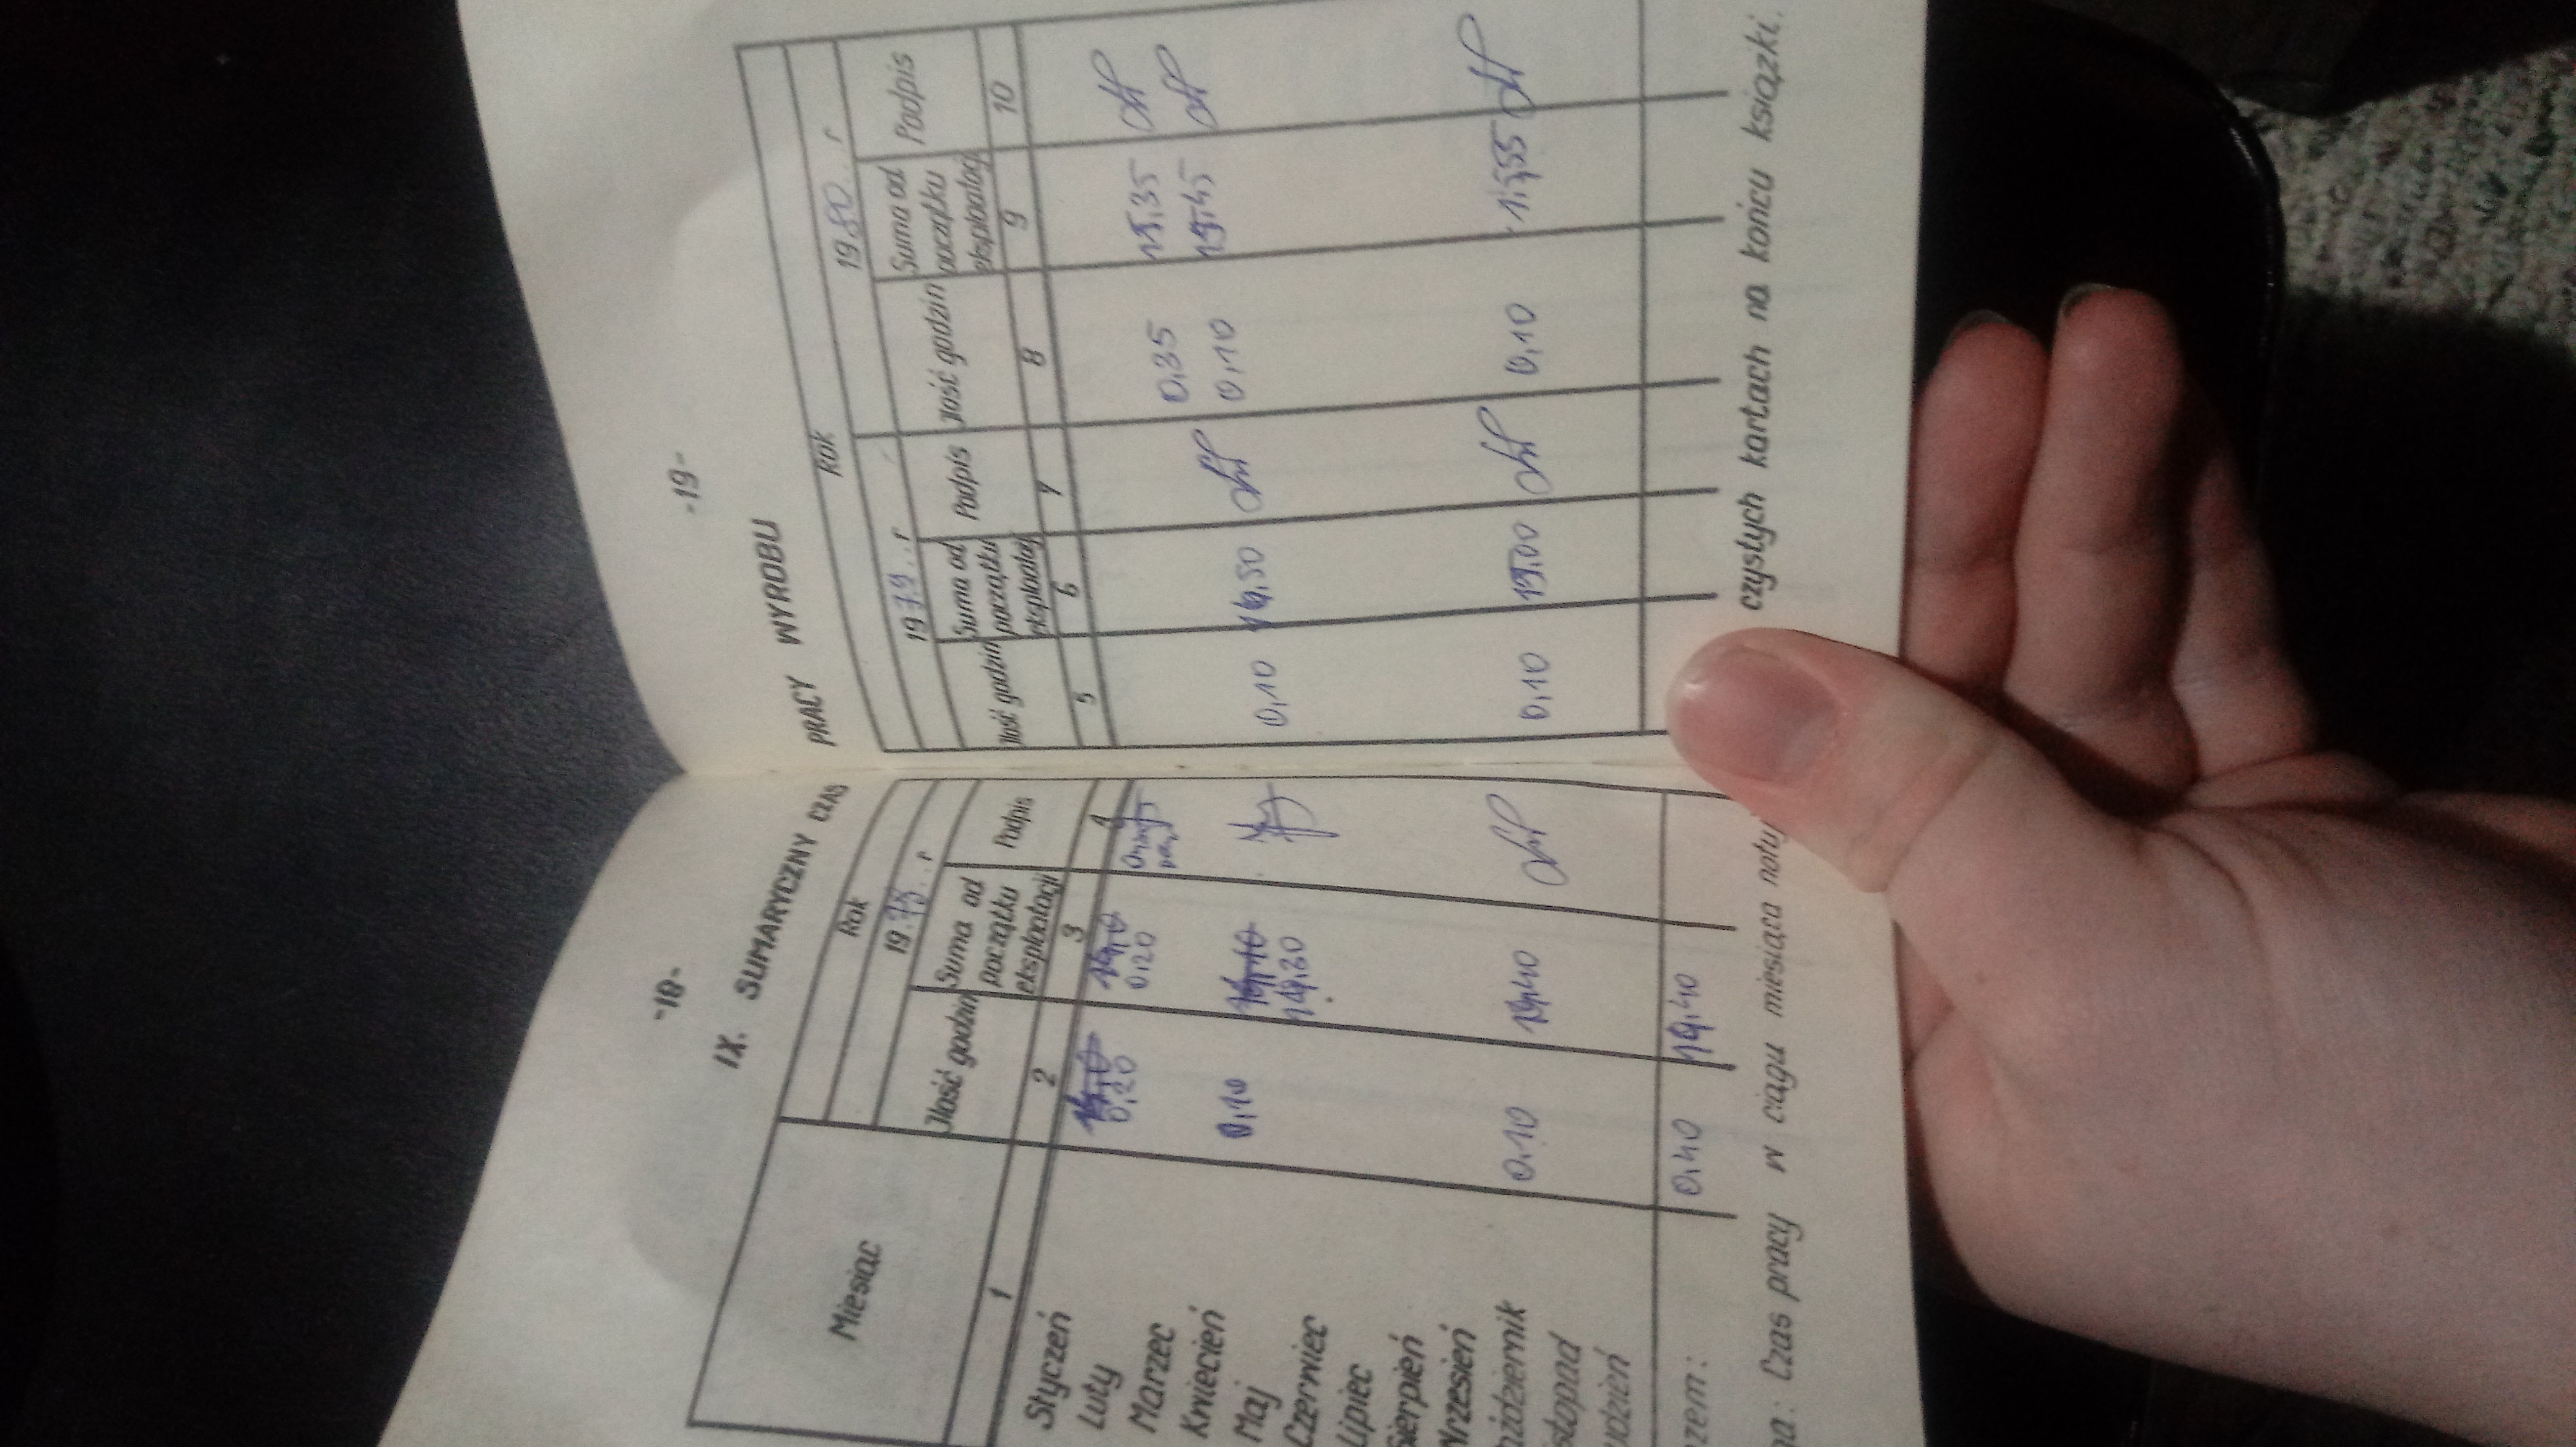 -18-
IX. SUMARYCZNY CZAS
Miesiąc
Rok
19 78 .. r
Ilość godzin
Suma od początku eksploatacji
Podpis
1 2 3 4
Styczeń
Luty 0,20 0,20
Marzec
Kwiecień
Maj 0,10
Czerwiec
Lipiec
Sierpień
Wrzesień
ździernik 0,10
stopad
udzień
zem: 0,40
na: Czas pracy w ciągu miesiąca notu
-19-
PRACY WYROBU
Rok
19 79 .. r 19 80 .. r
Ilość godzin
Suma od początku eksploatacj
Podpis
Ilość godzin
Suma od początku eksploatacj
Podpis
5 6 7 8 9 10
0,35 15,35
0,10 0,10 15,45
0,10 15,00 0,10
czystych kartach na końcu książki.